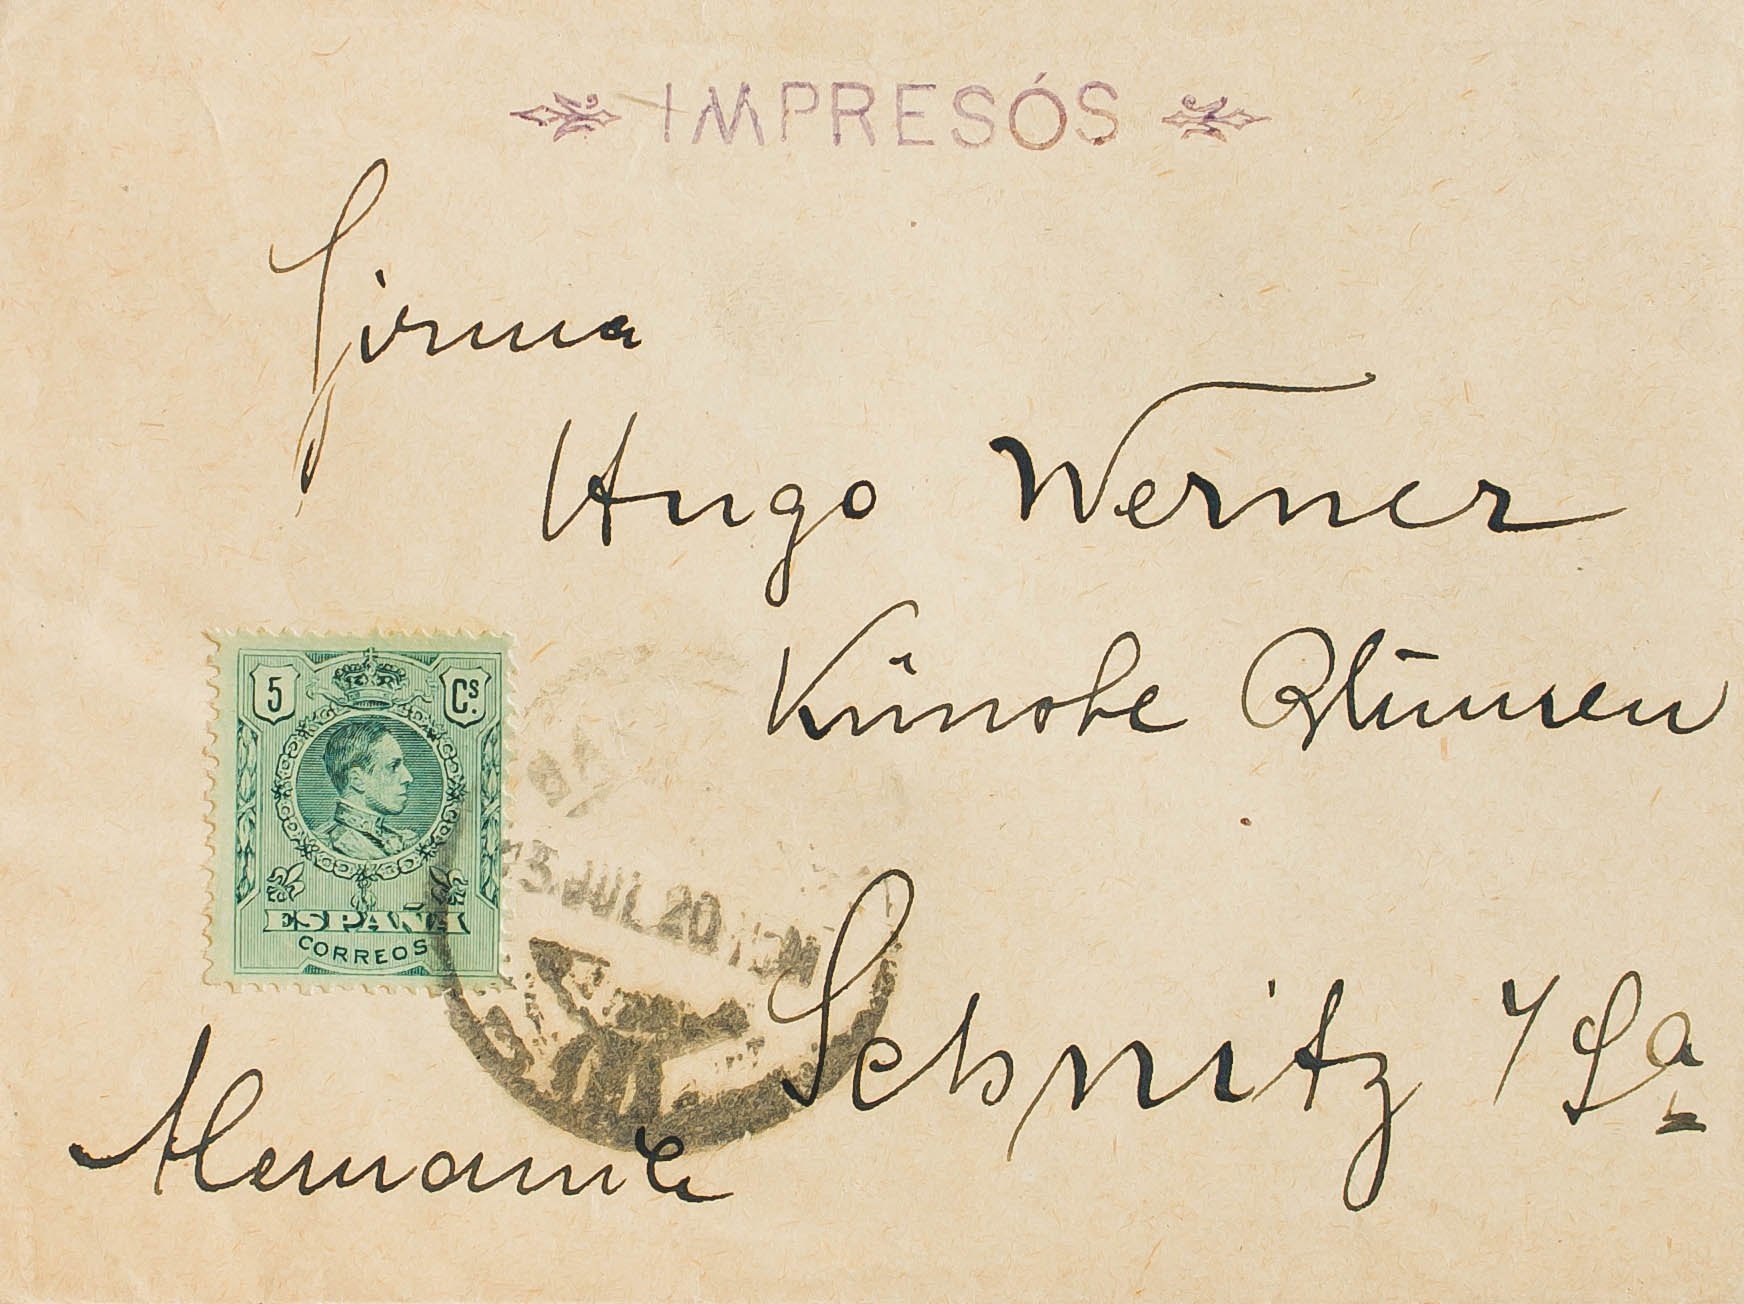 IMPRESÓS
Firma
Hugo Werner
Künstl. Blumen
5 Cs.
ESPAÑA
CORREOS
JUL 20
Sebnitz 1/Sa
Alemania